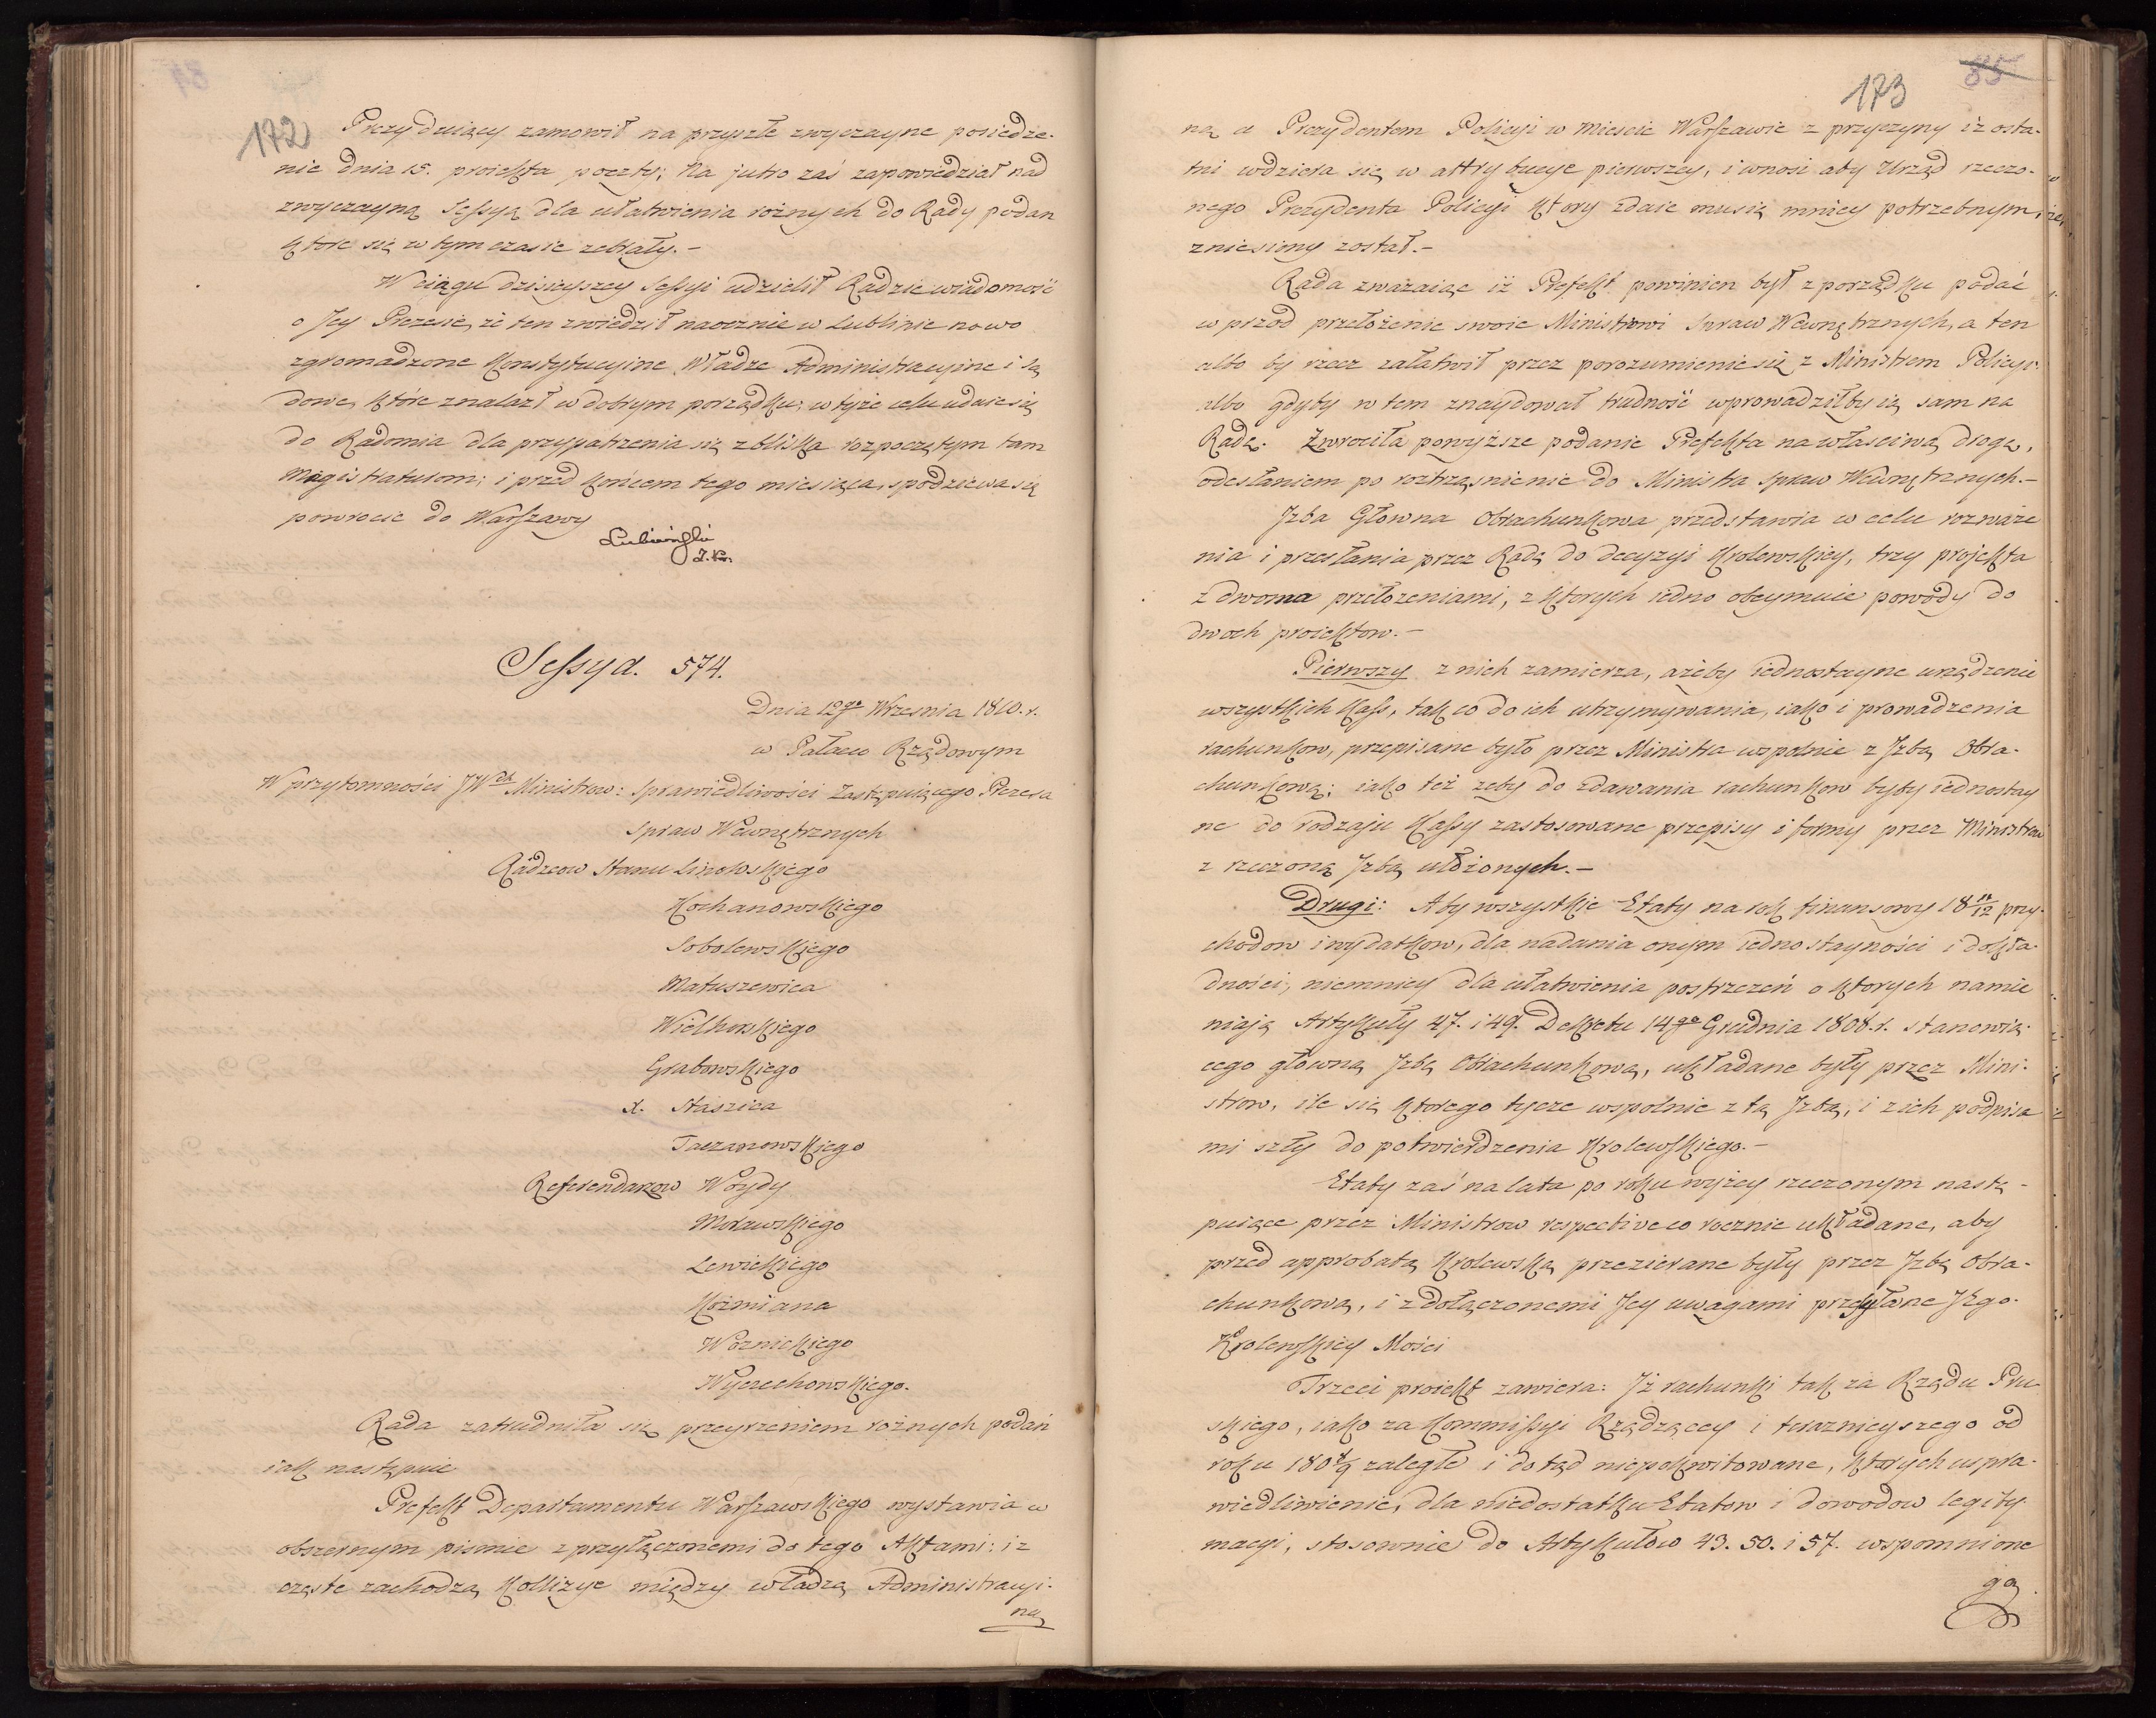 172
Prezyduiący zamowił na przyszłe zwyczayne posiedze-
nie dnia 15. proiekta poczty; Na jutro zaś zapowiedział nad
zwyczayną Sessyą dla ułatwienia rożnych do Rady podan
ktore się w tym czasie zebrały.-
W ciągu dzisieyszey Sessyi udzielił Radzie wiadomość
o Jey Prezesie, że ten zwiedził naocznie w Lublinie nowo
zgromadzone Konstytucyine Władze Administracyine i Są
dowe, które znalazł w dobrym porządku; w tyże celu udaie się
do Radomia dla przypatrzenia się zbliska rozpoczętym tam
Magistraturom; i przed końcem tego miesiąca, spodziewa się
powrocić do Warszawy
Lubieński
Sessya. 574.
Dnia 12go Września 1810. r.
w Pałacu Rządowym
W przytomności JWch Ministrow: Sprawiedliwości Zastępuiącego Prezesa
Spraw Wewnętrznych
Radzcow Stanu Linowskiego
Kochanowskiego
Sobolewskiego
Matuszewica
Wielhorskiego
Grabowskiego
X. Staszica
Taczanowskiego
Referendarzow Woydy
Morawskiego
Lewickiego
Kozmiana
Woznickiego
Wyczechowskiego.
Rada zatrudniła się przeyrzeniem rożnych podań
iak następuie
Prefekt Departamentu Warszawskiego wystawia w
obszernym pismie z przyłączonemi do tego Aktami: iz
częste zachodzą Kollizye między władzą Administracyi-
ną
173
85
ną a Prezydentem Policyi w Miescie Warszawie z przyczyny iż osta-
tni wdziera się w attrybucye pierwszey, i wnosi aby Urząd rzeczo-
nego Prezydenta Policyi ktory zdaie mu się mniey potrzebnym,
zniesiony został.-
Rada zważaiąc iż Prefekt powinien był z porządku podać
wprzod przełożenie swoie Ministrowi Spraw Wewnętrznych, a ten
albo by rzecz załatwił przez porozumienie się z Ministrem Policyi
albo gdyby w tem znaydował trudność wprowadziłby ią sam na
Radę. Zwrociła powyższe podanie Prefekta na właściwą drogę,
odesłaniem po roztrząśnienie do Ministra Spraw Wewnętrznych.-
Jzba Głowna Obrachunkowa przedstawia w celu rozważe
nia i przesłania przez Radę do decyzyi Krolewskiey, trzy projekta
z dwoma przełożeniami, z ktorych iedno obeymuie powody do
dwoch proiektow.-
Pierwszy z nich zamierza, ażeby iednostayne urządzenie
wszystkich Kass, tak co do ich utrzymywania, iako i prowadzenia
rachunkow, przepisane było przez Ministra wspolnie z Jzbą Obra-
chunkową; iako też zeby do zdawania rachunkow były iednostay
ne do rodzaju Kassy zastosowane przepisy i formy przez Ministrow
z rzeczoną Jzbą ułożonych.-
Drugi: Aby wszystkie Etaty na rok finansowy 18 11/12 przy-
chodow i wydatkow, dla nadania onym iednostayności i dokła-
dności, niemniey dla ułatwienia postrzeżeń o ktorych namie
niaią Artykuły 47. i 49. Dekretu 14go Grudnia 1808. r. stanowią-
cego główną Jzbę Obrachunkową, układane były przez Mini-
strow, ile się ktorego tycze wspólnie z tą Jzbą, i z ich podpisa
mi szły do potwierdzenia Krolewskiego.-
Etaty zaś na lata po roku wyżey rzeczonym nastę-
puiące przez Ministrow respective co rocznie układane, aby
przed approbatą Krolewską przezierane były przez Jzbę Obra-
chunkową, i z dołączonemi Jey uwagami przesyłane JEgo-
Krolewskiey Mości
Trzeci proiekt zawiera: Jż rachunki tak za Rządu Pru
skiego, iako za Kommissyi Rządzącey i teraznieyszego od
roku 180 8/9 zaległe i dotąd niepokwitowane, ktorych uspra-
wiedliwienie, dla niedostatku Etatow i dowodow legity
macyi, stosownie do Artykułow 43. 50. i 57. wspomnione
go